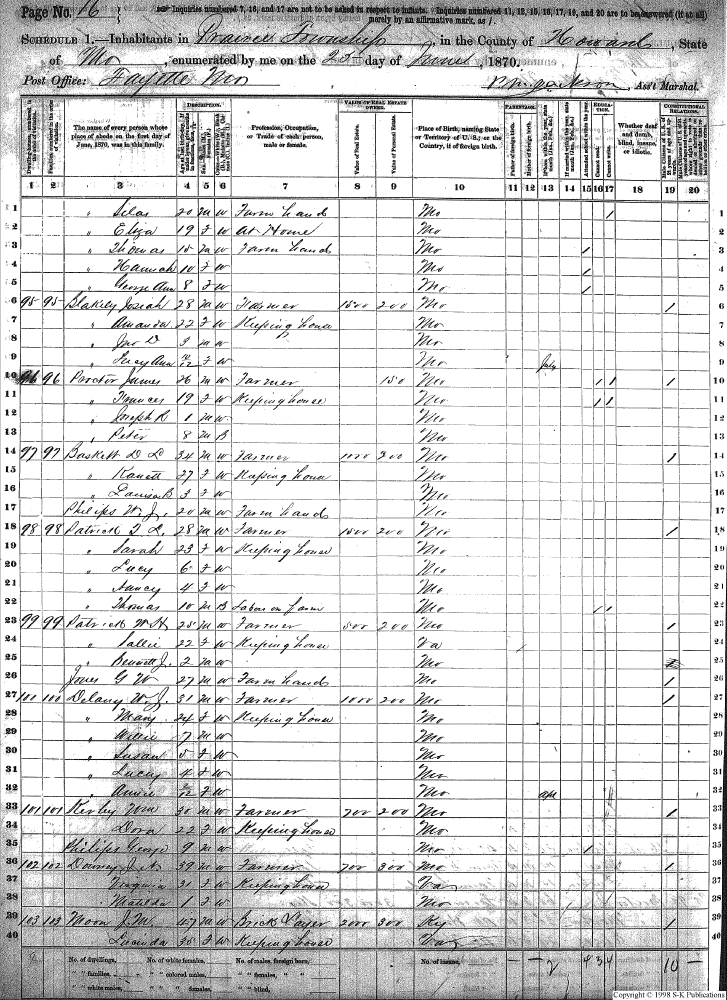 Page No. 16
Inquiries numbered 7, 16, and 17 are not to be asked in respect to infants. Inquiries numbered 11, 12, 15, 16, 17, 19, and 20 are to be answered (if at all) merely by an affirmative mark, as /.
SCHEDULE 1.—Inhabitants in Prairie Township, in the County of Howard, State
of Mo, enumerated by me on the 23 day of June, 1870.
Post Office: Fayette Mo
Ass't Marshal.
DESCRIPTION. VALUE OF REAL ESTATE OWNED. PARENTAGE. EDUCATION. CONSTITUTIONAL RELATIONS.
The name of every person whose place of abode on the first day of June, 1870, was in this family.
Profession, Occupation, or Trade of each person, male or female.
Value of Real Estate.
Value of Personal Estate.
Place of Birth, naming State or Territory of U. S.; or the Country, if of foreign birth.
Father of foreign birth.
Mother of foreign birth.
Cannot read.
Cannot write.
Whether deaf and dumb, blind, insane, or idiotic.
1 2 3 4 5 6 7 8 9 10 11 12 13 14 15 16 17 18 19 20
1 " Silas 20 M W Farm hand Mo / 1
2 " Eliza 19 F W At Home Mo 2
3 " Thomas 15 M W Farm hand Mo / 3
4 " Hannah 10 F W Mo / 4
5 " George Ann 8 F W Mo / 5
6 95 95 Blakely Josiah 28 M W Farmer 1500 200 Mo / 6
7 " Amanda 22 F W Keeping house Mo 7
8 " Jno D 3 M W Mo 8
9 " Lucy Ann F W Mo July 9
10 96 96 Proctor James 26 M W Farmer 150 Mo / / / 10
11 " Frances 19 F W Keeping house Mo / / 11
12 " Joseph R 1 M W Mo 12
13 " Peter 8 M B Mo 13
14 97 97 Baskett D L 34 M W Farmer 1000 200 Mo / 14
15 " 27 F W Keeping house Mo 15
16 " Louisa B 3 F W Mo 16
17 Philips W. J. 20 M W Farm hand Mo 17
18 98 98 Patrick T. L. 28 M W Farmer 1500 200 Mo / 18
19 " Sarah 23 F W Keeping house Mo 19
20 " Lucy 6 F W Mo 20
21 " Nancy 4 F W Mo 21
22 " Thomas 10 M B Labor on farm Mo / / 22
23 99 99 Patrick W H 25 M W Farmer 500 200 Mo / 23
24 " Sallie 22 F W Keeping house Va 24
25 " Bennett J. 2 M W Mo 25
26 Jones G W 27 M W Farm hand Mo / 26
27 100 100 Delany W. J. 31 M W Farmer 1000 200 Mo / 27
28 " Mary 24 F W Keeping house Mo 28
29 " Willie 7 M W Mo 29
30 " Susan 5 F W Mo 30
31 " Lucy 4 F W Mo 31
32 " Annie F W Mo Apr 32
33 101 101 Kerley Wm 30 M W Farmer 700 200 Mo / 33
34 " Dora 22 F W Keeping house Mo 34
35 Philips George 9 M W Mo / 35
36 102 102 Downey J. A. 39 M W Farmer 700 300 Mo / 36
37 " Virginia 31 F W Keeping house Va 37
38 " Matilda 1 F W Mo 38
39 103 103 Moon J. M. 47 M W Brick Layer 2000 300 Ky / 39
40 " Lucinda 35 F W Keeping house Va 40
No. of dwellings, No. of white females, No. of males, foreign born, No. of insane, 2 4 3 4 10
" " families, " " colored males, " " females, " "
" " white males, " " females, " " blind,
Copyright © 1998 S-K Publications